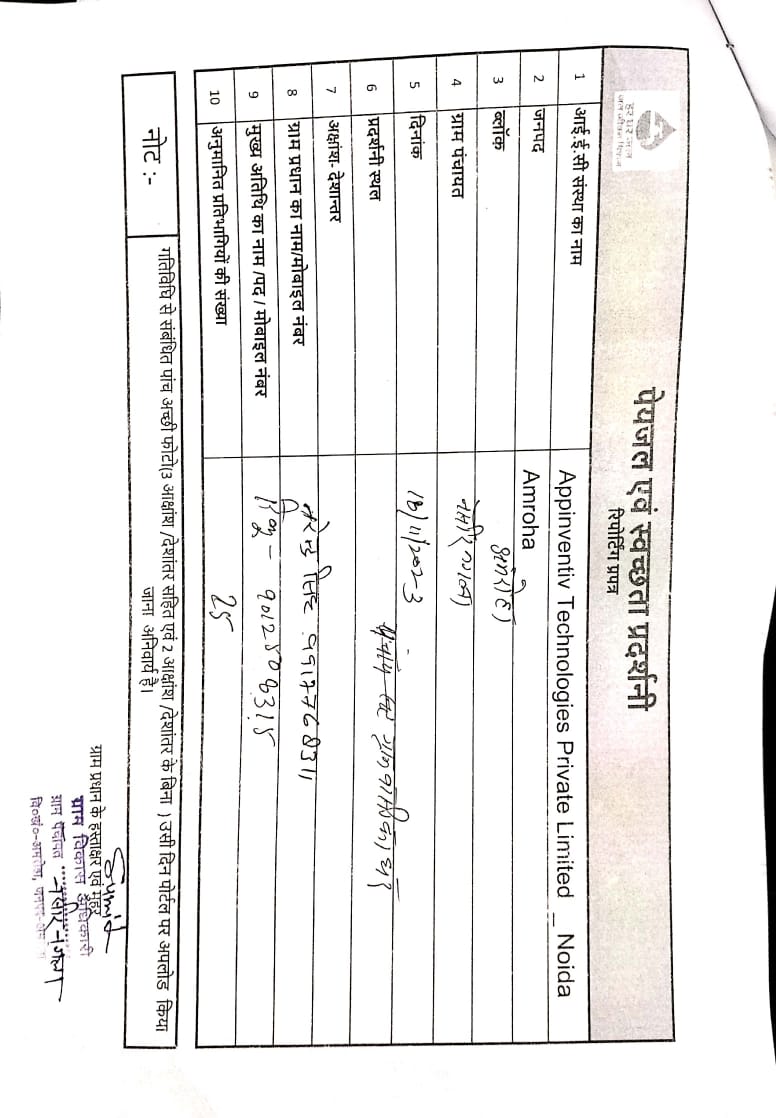 हर घर जल
जल जीवन मिशन
पेयजल एवं स्वच्छता प्रदर्शनी
रिपोर्टिंग प्रपत्र
1 आई.ई.सी संस्था का नाम Appinventiv Technologies Private Limited _ Noida
2 जनपद Amroha
3 ब्लॉक अमरोहा
4 ग्राम पंचायत
5 दिनांक 18/11/2023
6 प्रदर्शनी स्थल
7 अक्षांश- देशान्तर
8 ग्राम प्रधान का नाम/मोबाइल नंबर नरेन्द्र सिंह
9 मुख्य अतिथि का नाम /पद / मोबाइल नंबर
10 अनुमानित प्रतिभागियों की संख्या 25
नोट :- गतिविधि से संबंधित पांच अच्छी फोटो(3 आक्षांश /देशांतर सहित एवं 2 आक्षांश /देशांतर के बिना ) उसी दिन पोर्टल पर अपलोड किया
जाना अनिवार्य है।
Sumit
ग्राम प्रधान के हस्ताक्षर एवं मुहर
ग्राम विकास अधिकारी
ग्राम पंचायत
वि०खं०-अमरोहा, जनपद-